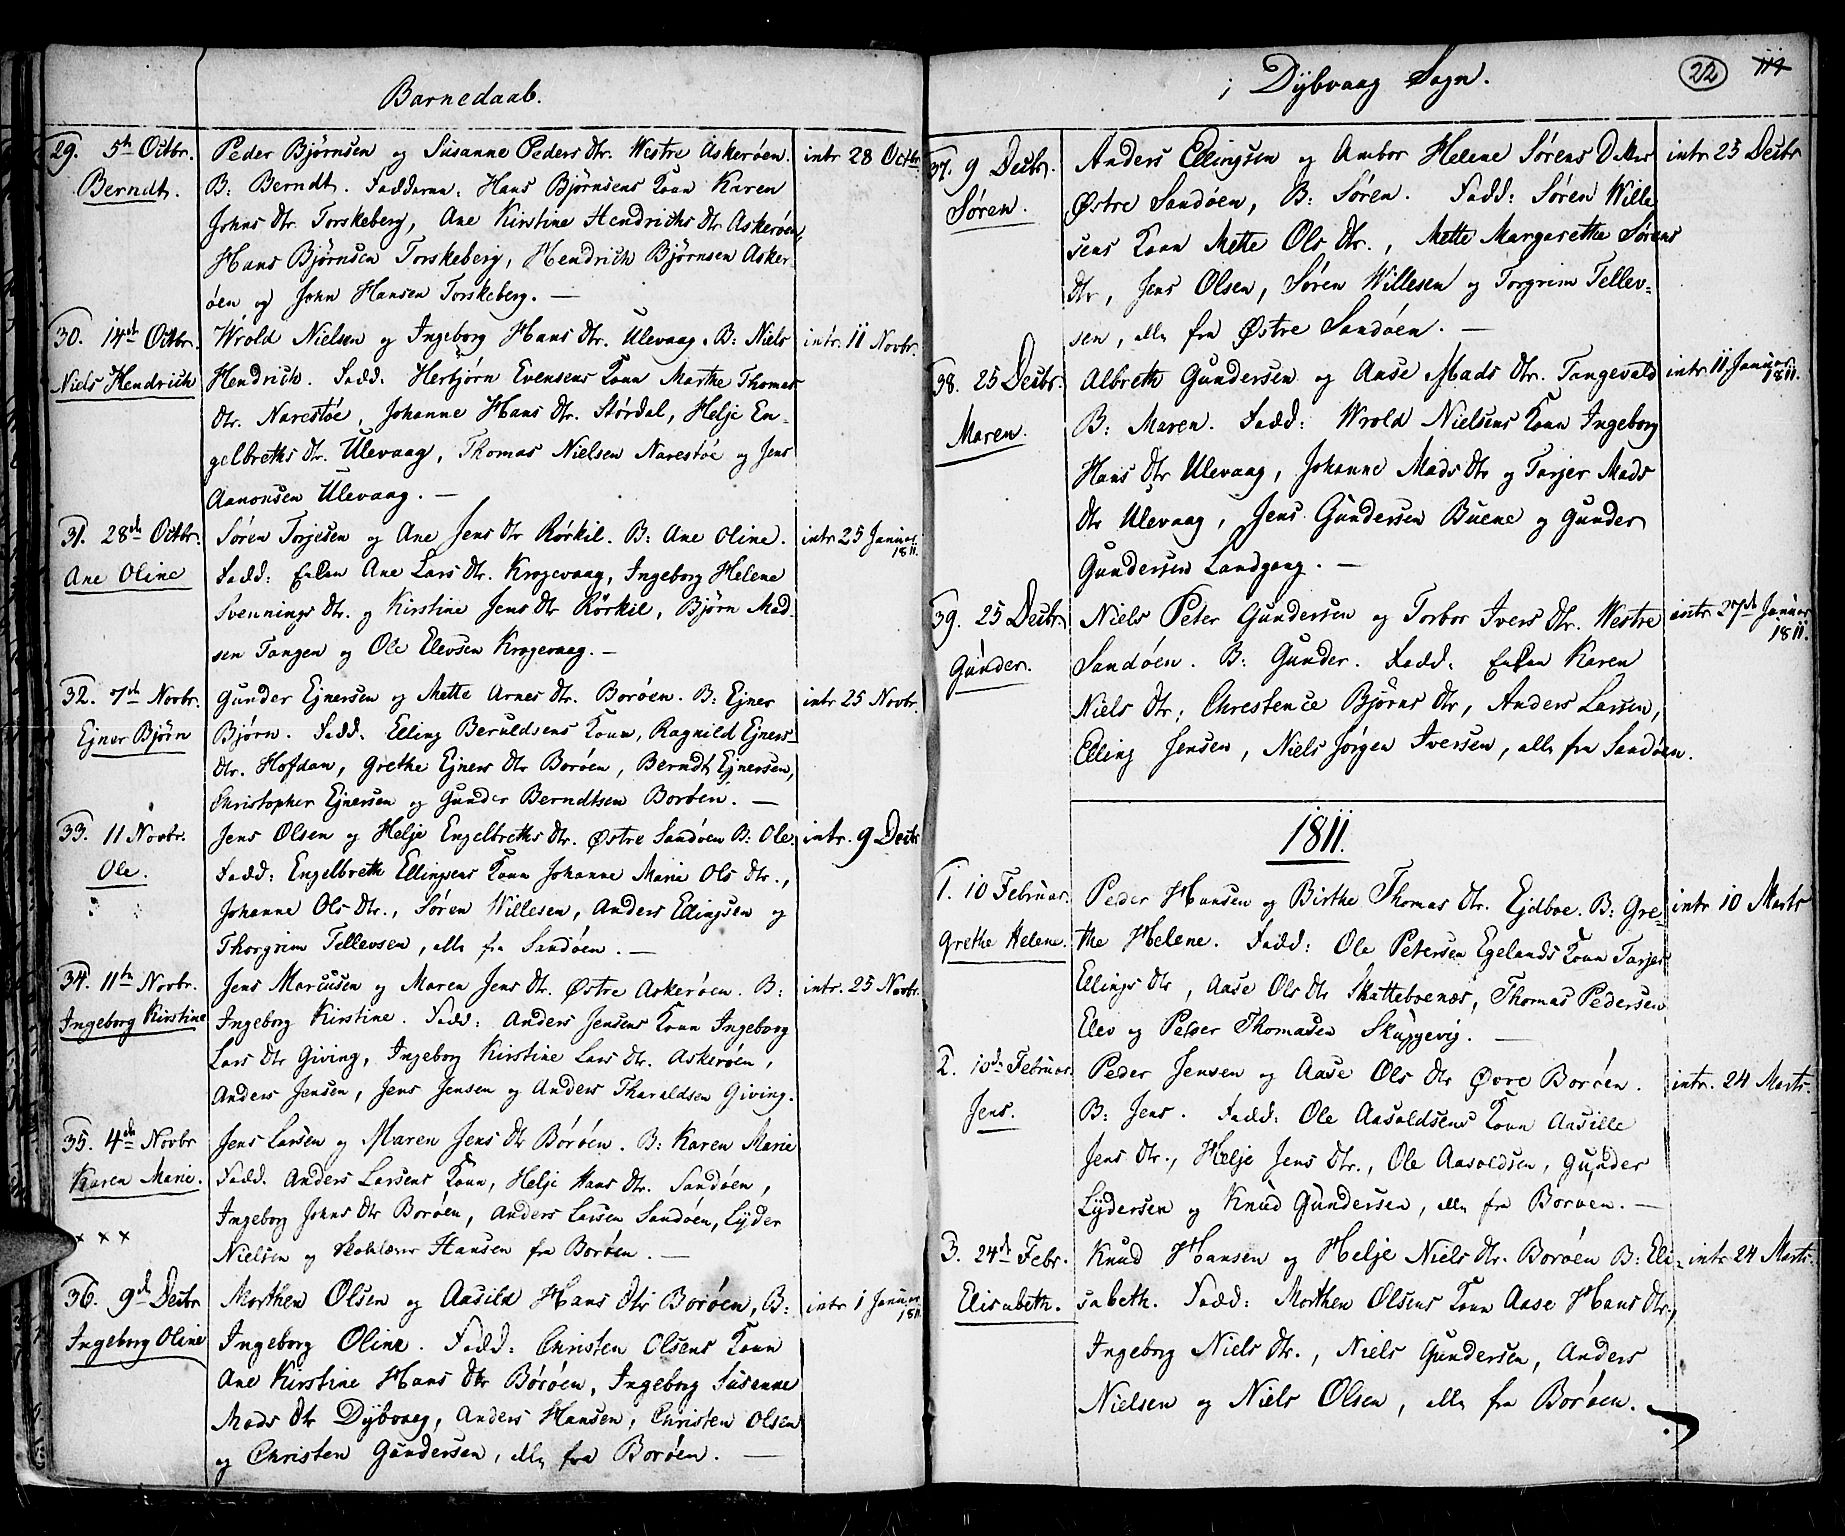 Barnedaab.
29. 5te Octbr. Peder Björnsen og Susanne Peders Dtr. Westre Askeröen. intr 28 Octbr.
Berndt. B: Berndt. Fadderne: Hans Björnsens Kone Karen
Johns Dtr. Torskeberg, Ane Kirstine Hendrichs Dtr Askeröen,
Hans Björnsen Torskeberg, Hendrich Björnsen Asker-
öen og John Hansen Torskeberg. —
30. 14de Octbr. Wrold Nielsen og Ingeborg Hans Dtr. Ulevaag. B: Niels intr. 11 Novbr.
Niels Hendrich Hendrich. Fadd. Herbjörn Evensens Kone Marthe Thomas
Dtr. Narestöe, Johanne Hans Dtr. Stördal, Helje En-
gelbreths Dtr. Ulevaag, Thomas Nielsen Narestöe og Jens
Aanonsen Ulevaag. —
31. 28de Octbr. Sören Torjesen og Ane Jens Dtr Rörkil. B: Ane Oline. intr 25 Januar 1811
Ane Oline Fadd: Enken Ane Lars Dtr. Krogevaag, Ingeborg Helene
Svennings Dtr. og Kirstine Jens Dtr Rörkil, Björn Mad-
sen Tangen og Ole Elevsen Krogevaag. —
32. 7de Novbr. Gunder Ejnersen og Mette Arnes Dtr. Boröen. B: Ejner intr 25 Novbr.
Ejner Björn Björn. Fadd. Elling Beruldsens Kone, Ragnild Ejners-
Dtr. Hofdan, Grethe Ejners Dtr Boröen, Berndt Ejnersen,
Christopher Ejnersen og Gunder Berndtsen Boröen. —
33. 11 Novbr. Jens Olsen og Helje Engelbreths Dtr. Östre Sandöen B: Ole. intr. 9 Decbr
Ole. Fadd: Engelbreth Ellingsens Kone Johanne Marie Ols Dtr.,
Johanne Ols Dtr., Sören Willesen, Anders Ellingsen og
Thorgrim Tellevsen, alle fra Sandöen. —
34. 11te Novbr. Jens Marcusen og Maren Jens Dtr. Östre Askeröen. B: intr. 25 Novbr.
Ingeborg Kirstine Ingeborg Kirstine. Fadd: Anders Jensens Kone Ingeborg
Lars Dtr Giving, Ingeborg Kirstine Lars Dtr. Askeröen,
Anders Jensen, Jens Jensen og Anders Tharaldsen Giving.
35. 4de Novbr Jens Larsen og Maren Jens Dtr Boröen. B: Karen Marie
Karen Marie. Fadd. Anders Larsens Kone, Helje Hans Dtr. Sandöen,
Ingeborg Johns Dtr Boröen, Anders Larsen Sandöen, Lyder
× × × Nielsen og Skohlærer Hansen fra Boröen. —
36. 9de Decbr Morthen Olsen og Aasild Hans Dtr Boröen, B: intr 1 Januar 1811
Ingeborg Oline Ingeborg Oline. Fadd: Christen Olsens Kone
Ane Kirstine Hans Dtr Boröen, Ingeborg Susanne
Mads Dtr Dybvaag, Anders Hansen, Christen Olsen
og Christen Gundersen, alle fra Boröen. —
i Dybvaag Sogn. 22 119
37. 9 Decbr. Anders Ellingsen og Ambor Helene Sörens Datter intr 25 Decbr
Sören. Östre Sandöen, B: Sören. Fadd: Sören Wille
sens Kone Mette Ols Dtr., Mette Margarethe Sörens
Dtr, Jens Olsen, Sören Willesen og Torgrim Tellev-
sen, alle fra Östre Sandöen. —
38. 25 Decbr. Albreth Gundersen og Aase Mads Dtr. Tangevald intr 11 Januar 1811.
Maren. B: Maren. Fadd: Wrold Nielsens Kone Ingeborg
Hans Dtr Ulevaag, Johanne Mads Dtr og Tarjer Mads
Dtr Ulevaag, Jens Gundersen Buene og Gunder
Gundersen Landgang. —
39. 25 Decbr Niels Peter Gundersen og Torbor Ivers Dtr. Westre intr. 27de Januar 1811.
Gunder. Sandöen. B: Gunder. Fadd: Enken Karen
Niels Dtr, Chrestence Björns Dtr, Anders Larsen,
Elling Jensen, Niels Jörgen Iversen, alle fra Sandöen.
1811.
1. 10 Februar. Peder Hansen og Birthe Thomas Dtr. Ejdboe. B: Gre- intr 10 Marts
Grethe Helene. the Helene. Fadd: Ole Petersen Egelands Kone Tarjer
Ellings Dtr, Aase Ols Dtr Skatteboenæs, Thomas Pedersen
Elev og Peder Thomasen Skuggevig. —
2. 10de Februar. Peder Jensen og Aase Ols Dtr Övre Boröen. intr. 24 Marts.
Jens. B: Jens. Fadd: Ole Aasoldsens Kone Aasille
Jens Dtr., Helje Jens Dtr., Ole Aasoldsen, Gunder
Lydersen og Knud Gundersen, alle fra Boröen. —
3. 24de Febr. Knud Hansen og Helje Niels Dtr. Boröen B: Eli- intr 24 Marts.
Elisabeth. sabeth. Fadd: Morthen Olsens Kone Aase Hans Dtr.,
Ingeborg Niels Dtr., Niels Gundersen, Anders
Nielsen og Niels Olsen, alle fra Boröen.